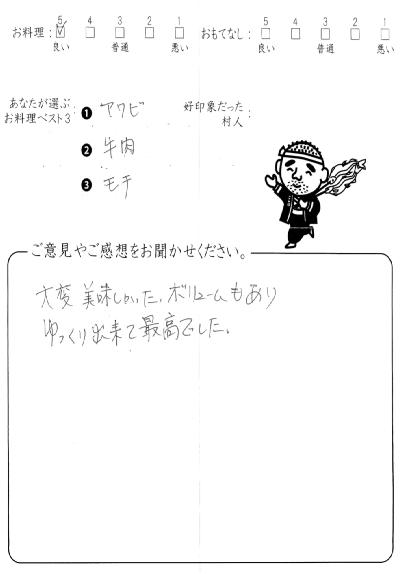 お料理: 5 4 3 2 1 おもてなし: 5 4 3 2 1
良い 普通 悪い 良い 普通 悪い
あなたが選ぶ お料理ベスト3
❶ アワビ
❷ 牛肉
❸ モチ
好印象だった 村人
ご意見やご感想をお聞かせください。
大変美味しかった。ボリュームもあり
ゆっくり出来て最高でした。